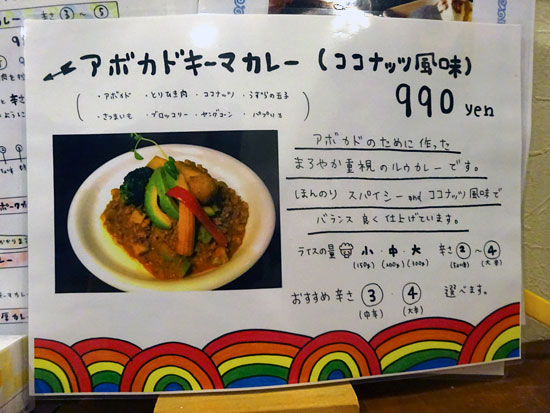 アボカドキーマカレー (ココナッツ風味)
・アボカド ・とりひき肉 ・ココナッツ ・うずらの玉子
・さつまいも ・ブロッコリー ・ヤングコーン ・パプリカ
990 yen
アボカドのために作った
まろやか重視のルウカレーです。
ほんのりスパイシー and ココナッツ風味で
バランス良く仕上げています。
ライスの量 小・中・大 辛さ②〜④
(150g) (200g) (大辛)
おすすめ辛さ ③・④ 選べます。
(中辛) (大辛)